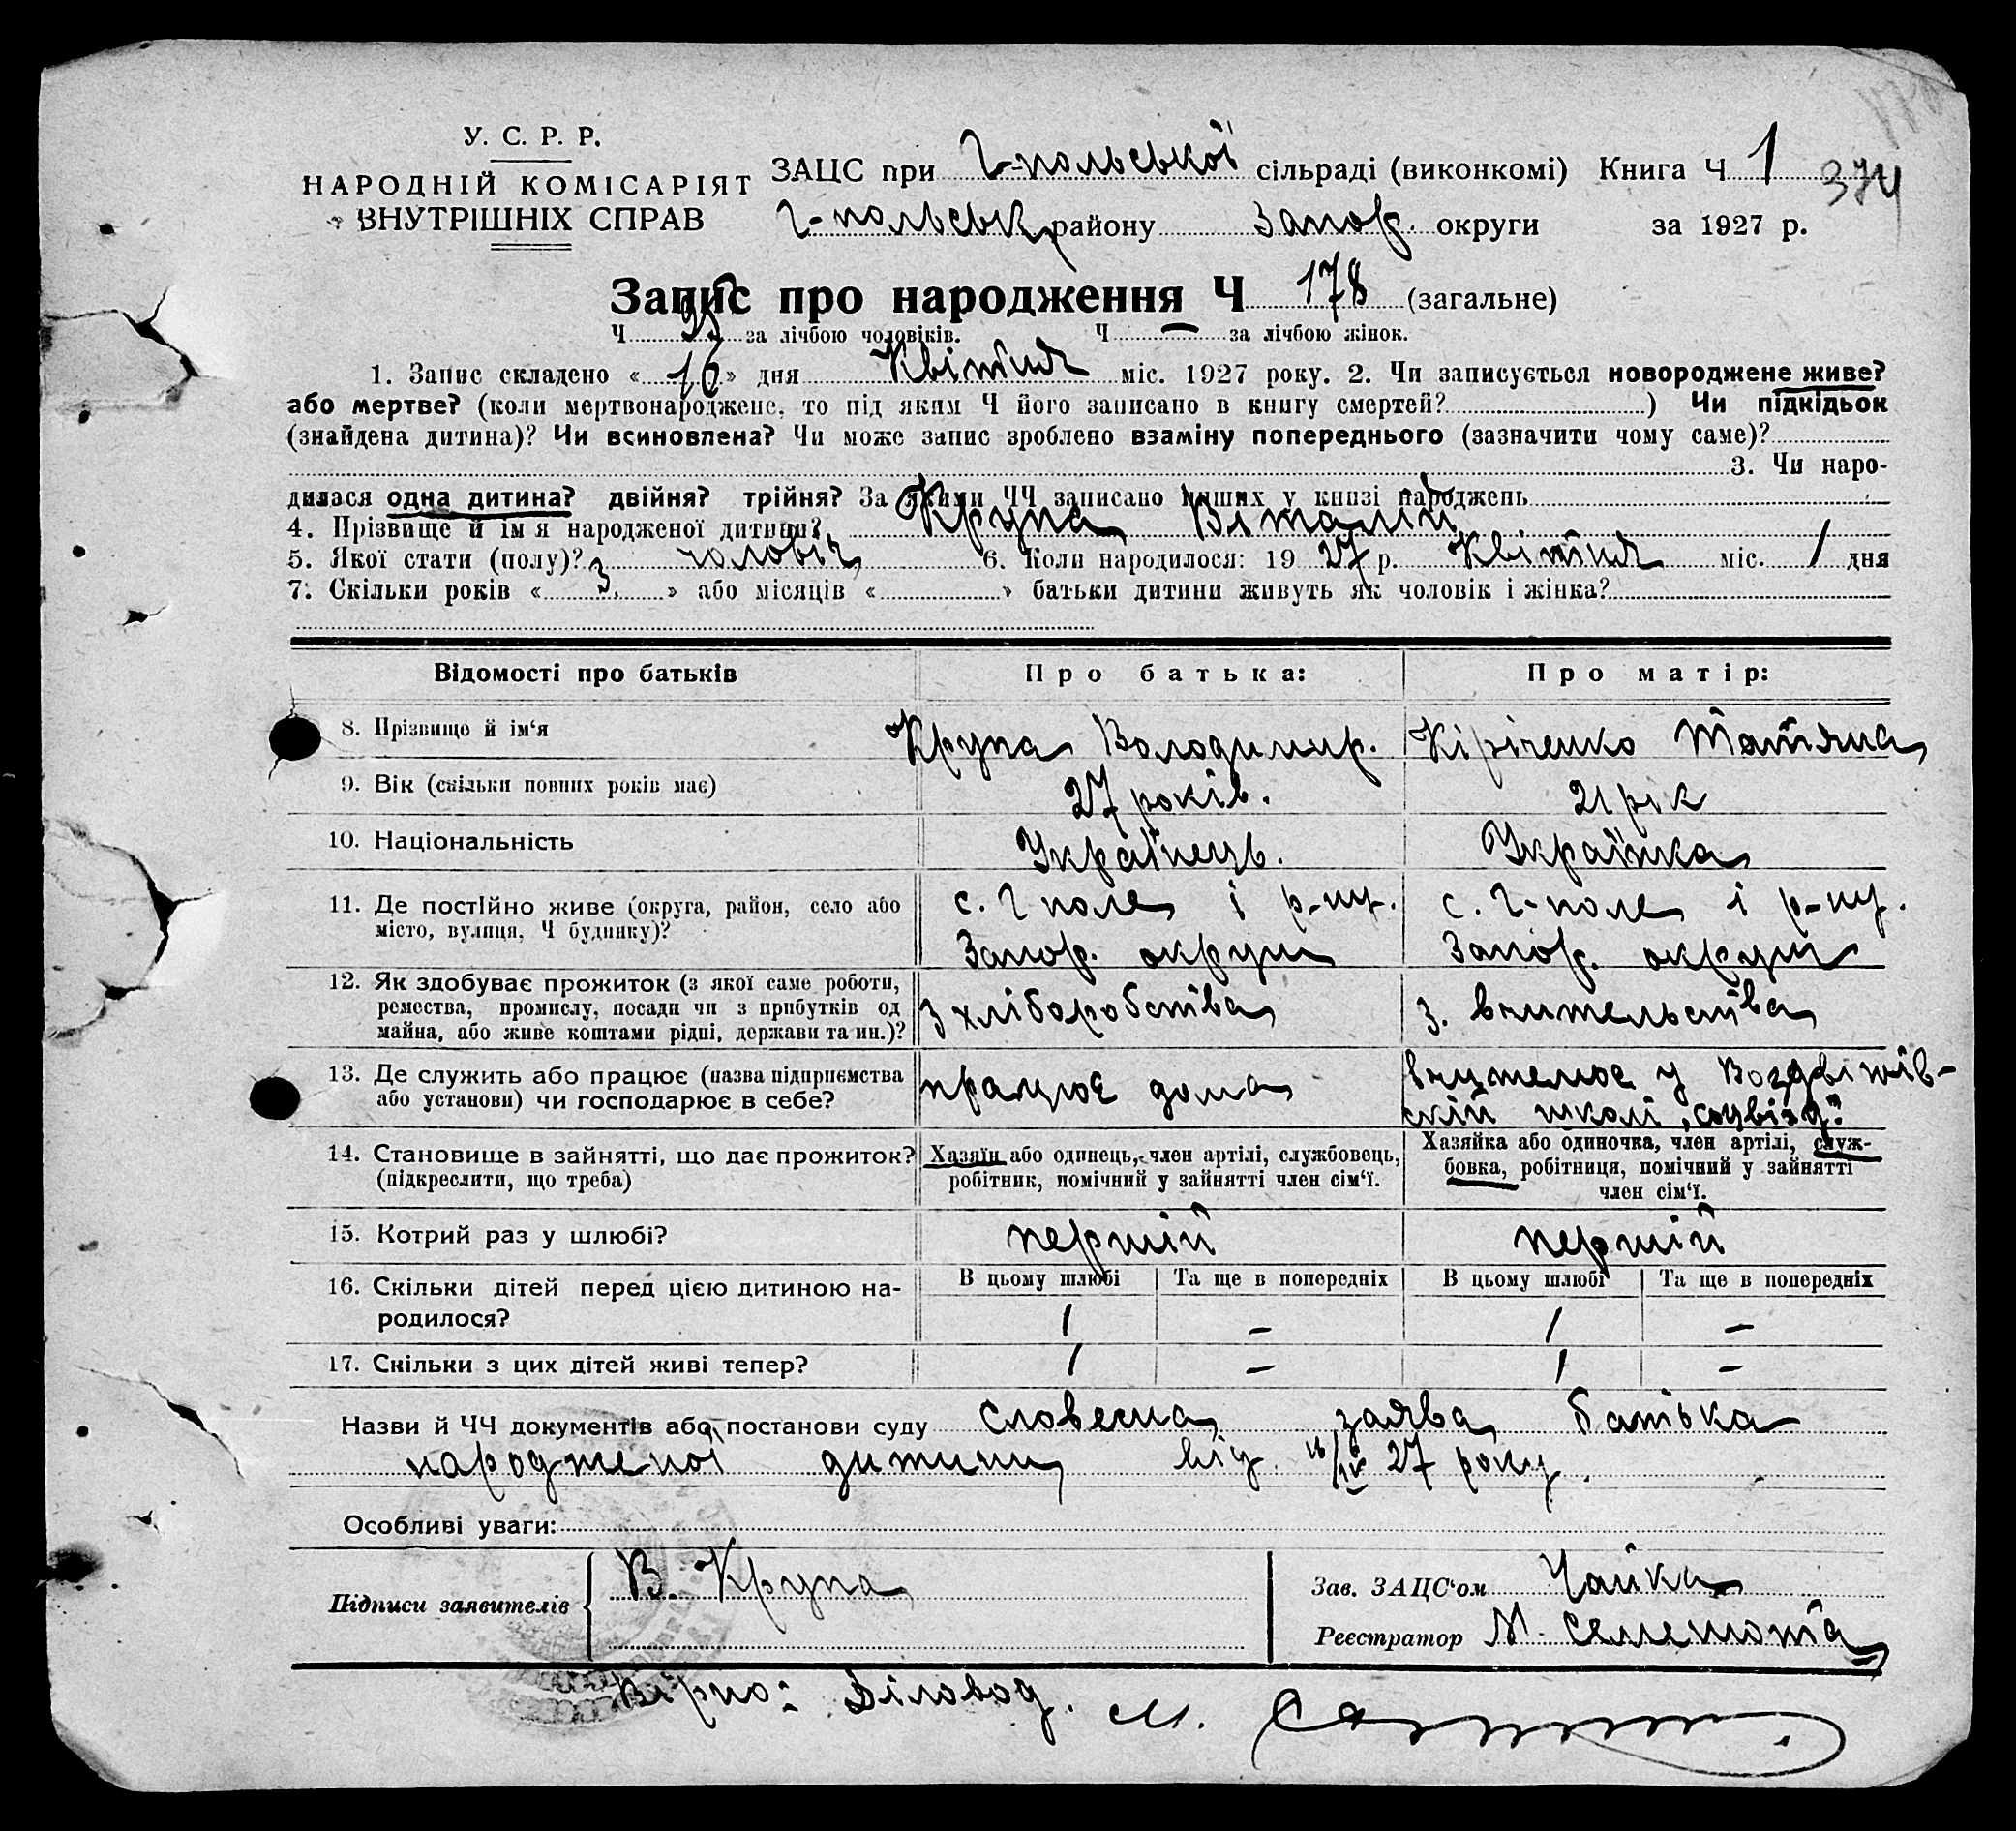 У. С. Р. Р.
НАРОДНІЙ КОМІСАРІЯТ
ВНУТРІШНІХ СПРАВ
ЗАЦС при Г-польської сільраді (виконкомі) Книга Ч 1
374
Г-польськ району Запор. округи за 1927 р.
Запис про народження Ч 178 (загальне)
Ч 95 за лічбою чоловіків. Ч — за лічбою жінок.
1. Запис складено «16» дня Квітня міс. 1927 року. 2. Чи записується новороджене живе?
або мертве? (коли мертвонароджене, то під яким Ч його записано в книгу смертей?) Чи підкідьок
(знайдена дитина)? Чи всиновлена? Чи може запис зроблено взаміну попереднього (зазначити чому саме)?
3. Чи наро-
дилася одна дитина? двійня? трійня? За якими ЧЧ записано инших у книзі народжень
4. Прізвище й ім'я народженої дитини? Крупа Віталій
5. Якої стати (полу)? чоловіч 6. Коли народилося: 1927 р. Квітня міс. 1 дня
7. Скільки років «3» або місяців « » батьки дитини живуть як чоловік і жінка?
Відомості про батьків Про батька: Про матір:
8. Прізвище й ім'я Крупа Володимир. Кіріченко Татяна
9. Вік (скільки повних років має) 27 років. 21 рік
10. Національність Українець. Українка
11. Де постійно живе (округа, район, село або с. Г поле і р-ну. с. Г-поле і р-ну.
місто, вулиця, Ч будинку)? Запор. округи Запор. округи
12. Як здобуває прожиток (з якої саме роботи,
ремества, промислу, посади чи з прибутків од з хліборобства з. вчительства
майна, або живе коштами рідні, держави та ин.)?
13. Де служить або працює (назва підприємства працює дома вчителює у Воздвіжів-
або установи) чи господарює в себе? скій школі, соцвіх.
14. Становище в зайнятті, що дає прожиток? Хазяїн або одинець, член артілі, службовець, Хазяйка або одиночка, член артілі, служ-
(підкреслити, що треба) робітник, помічний у зайнятті член сім'ї. бовка, робітниця, помічний у зайнятті
член сім'ї.
15. Котрий раз у шлюбі? першій першій
16. Скільки дітей перед цією дитиною на- В цьому шлюбі Та ще в попередніх В цьому шлюбі Та ще в попередніх
родилося? 1 — 1 —
17. Скільки з цих дітей живі тепер? 1 — 1 —
Назви й ЧЧ документів або постанови суду словесна заява батька
народженої дитини від 16/IV 27 року.
Особливі уваги:
Підписи заявителів В. Крупа Зав. ЗАЦС'ом Чайка
Реєстратор М. Селемота
Вірно: Діловод. М.